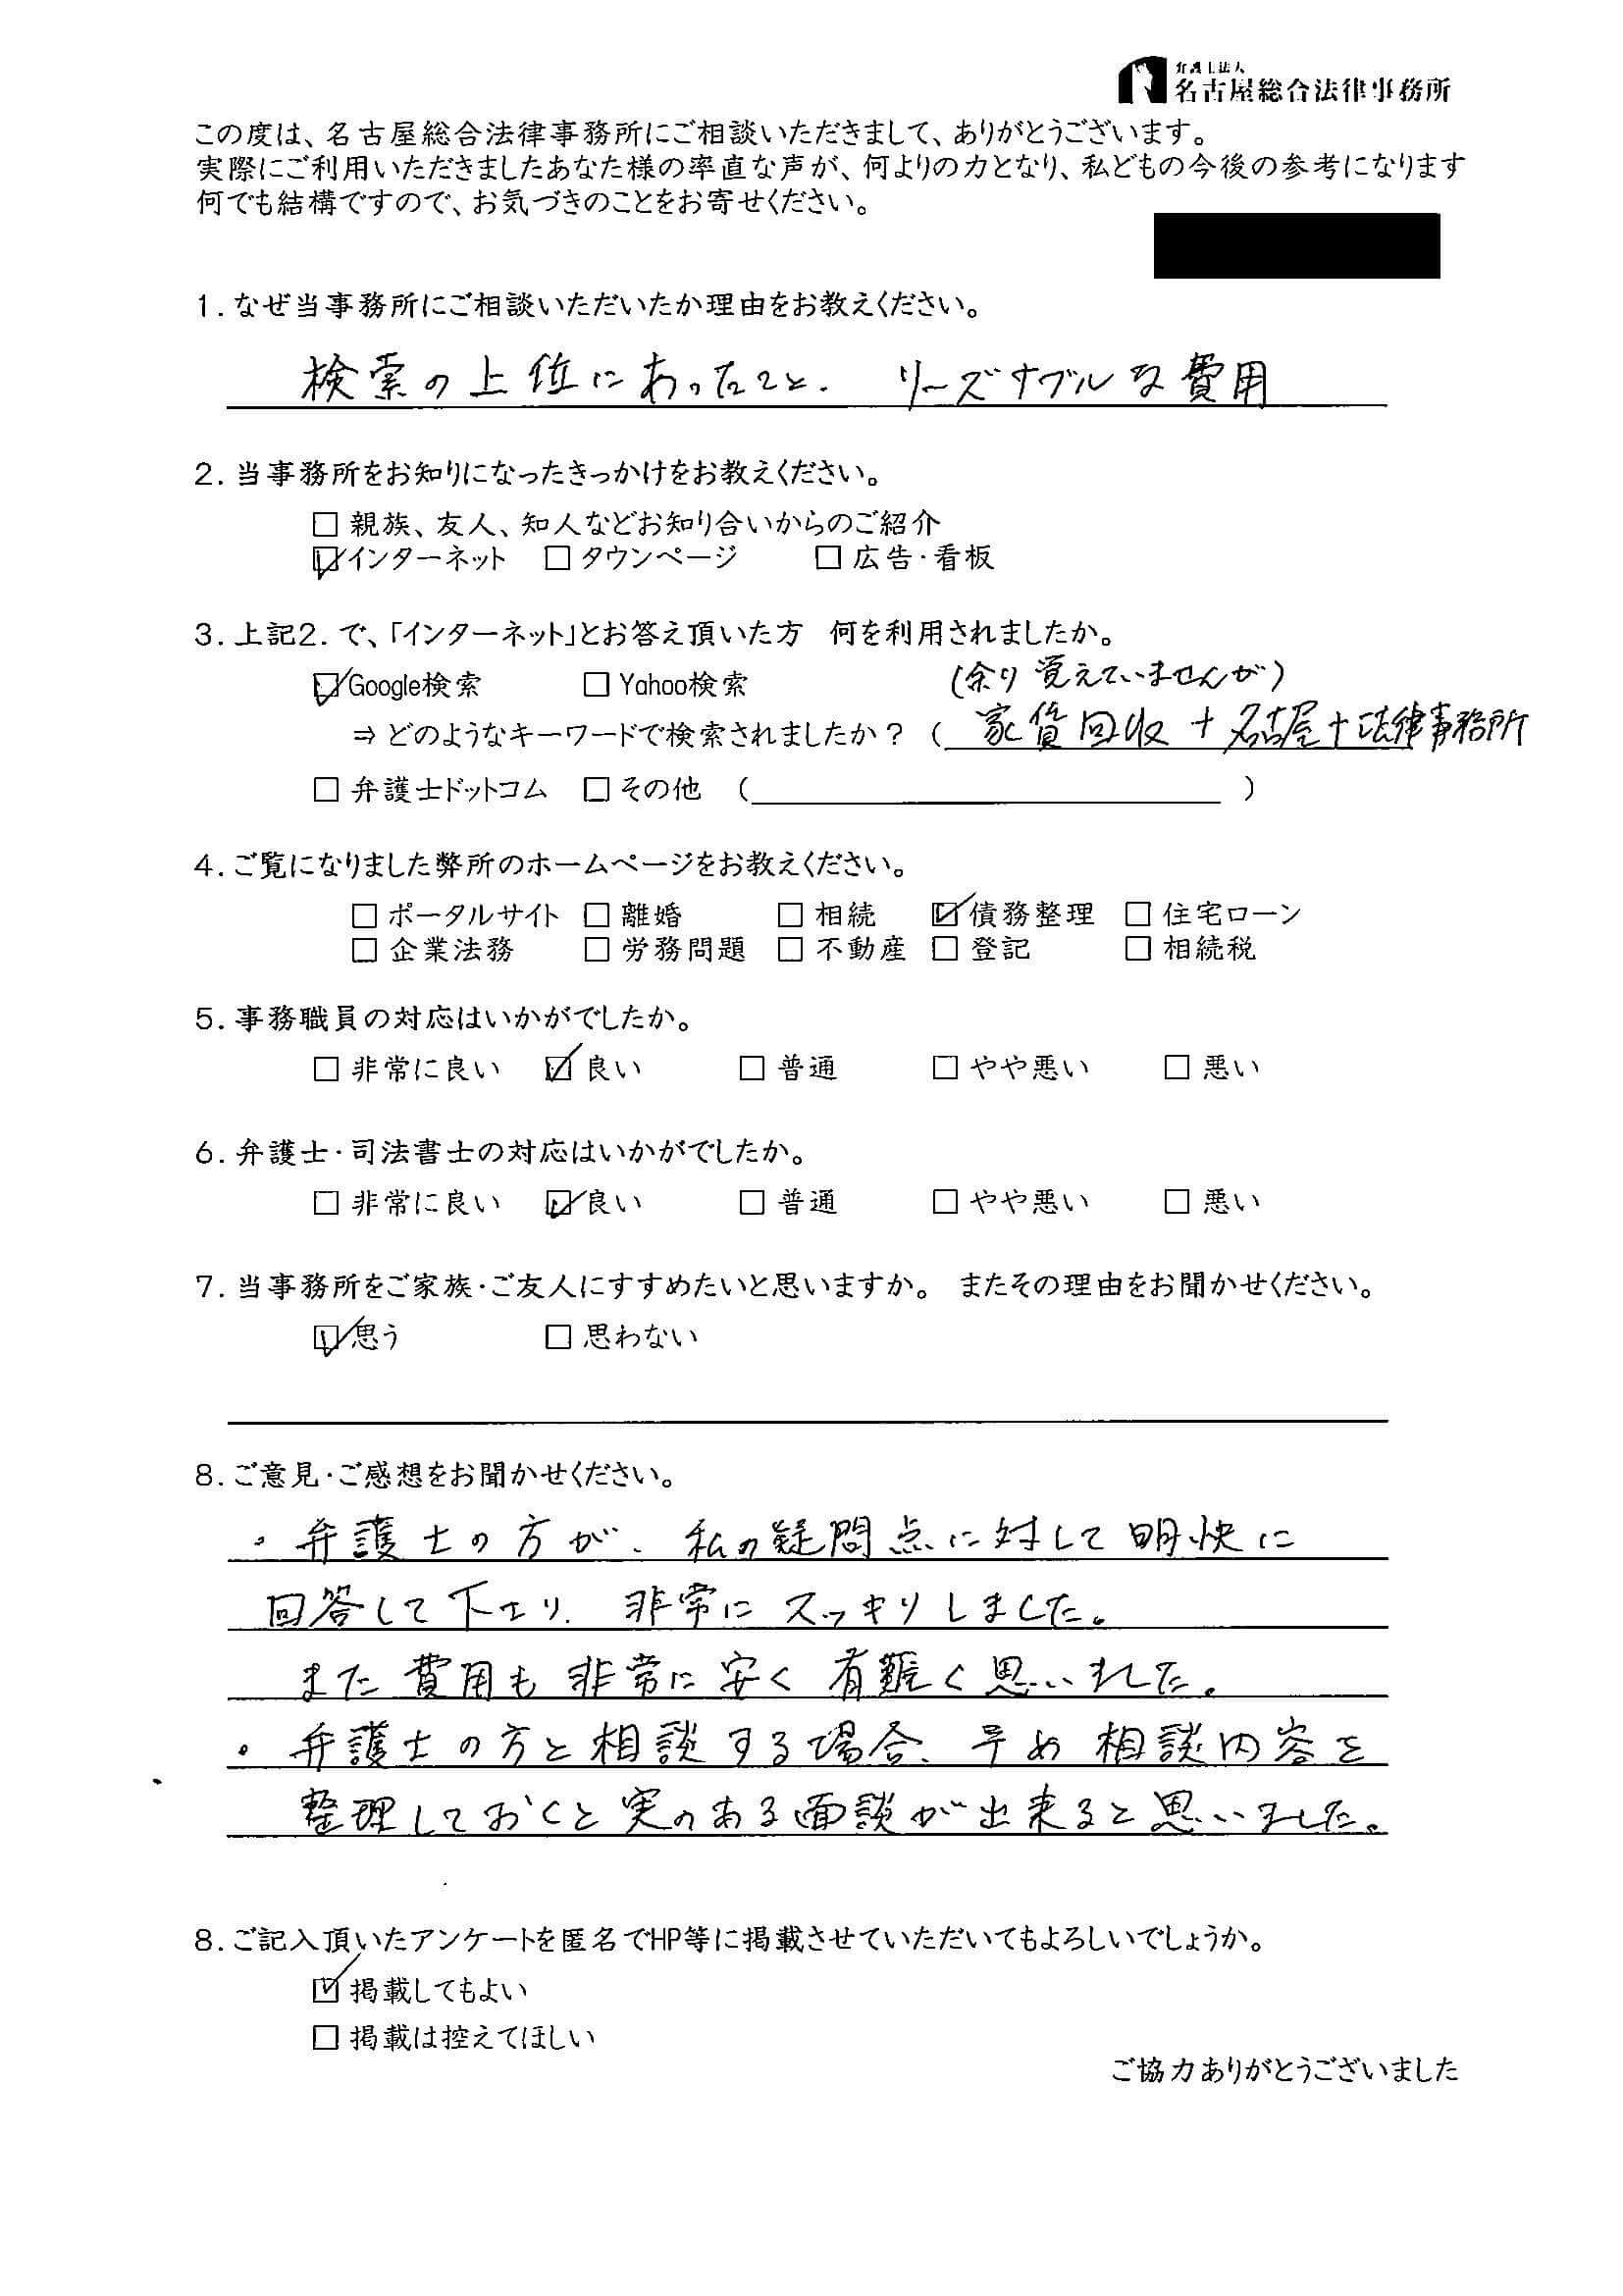 弁護士法人
名古屋総合法律事務所
この度は、名古屋総合法律事務所にご相談いただきまして、ありがとうございます。
実際にご利用いただきましたあなた様の率直な声が、何よりの力となり、私どもの今後の参考になります
何でも結構ですので、お気づきのことをお寄せください。
1. なぜ当事務所にご相談いただいたか理由をお教えください。
検索の上位にあったこと、 リーズナブルな費用
2. 当事務所をお知りになったきっかけをお教えください。
□ 親族、友人、知人などお知り合いからのご紹介
☑ インターネット □ タウンページ □ 広告・看板
3. 上記2. で、「インターネット」とお答え頂いた方 何を利用されましたか。
☑ Google検索 □ Yahoo検索 (余り覚えていませんが)
⇒ どのようなキーワードで検索されましたか? ( 家賃回収 + 名古屋 + 法律事務所
□ 弁護士ドットコム □ その他 ( )
4. ご覧になりました弊所のホームページをお教えください。
□ ポータルサイト □ 離婚 □ 相続 ☑ 債務整理 □ 住宅ローン
□ 企業法務 □ 労務問題 □ 不動産 □ 登記 □ 相続税
5. 事務職員の対応はいかがでしたか。
□ 非常に良い ☑ 良い □ 普通 □ やや悪い □ 悪い
6. 弁護士・司法書士の対応はいかがでしたか。
□ 非常に良い ☑ 良い □ 普通 □ やや悪い □ 悪い
7. 当事務所をご家族・ご友人にすすめたいと思いますか。 またその理由をお聞かせください。
☑ 思う □ 思わない
8. ご意見・ご感想をお聞かせください。
・弁護士の方が、私の疑問点に対して明快に
回答して下さり、非常にスッキリしました。
また費用も非常に安く有難く思いました。
・弁護士の方と相談する場合、予め相談内容を
整理しておくと実のある面談が出来ると思いました。
8. ご記入頂いたアンケートを匿名でHP等に掲載させていただいてもよろしいでしょうか。
☑ 掲載してもよい
□ 掲載は控えてほしい
ご協力ありがとうございました